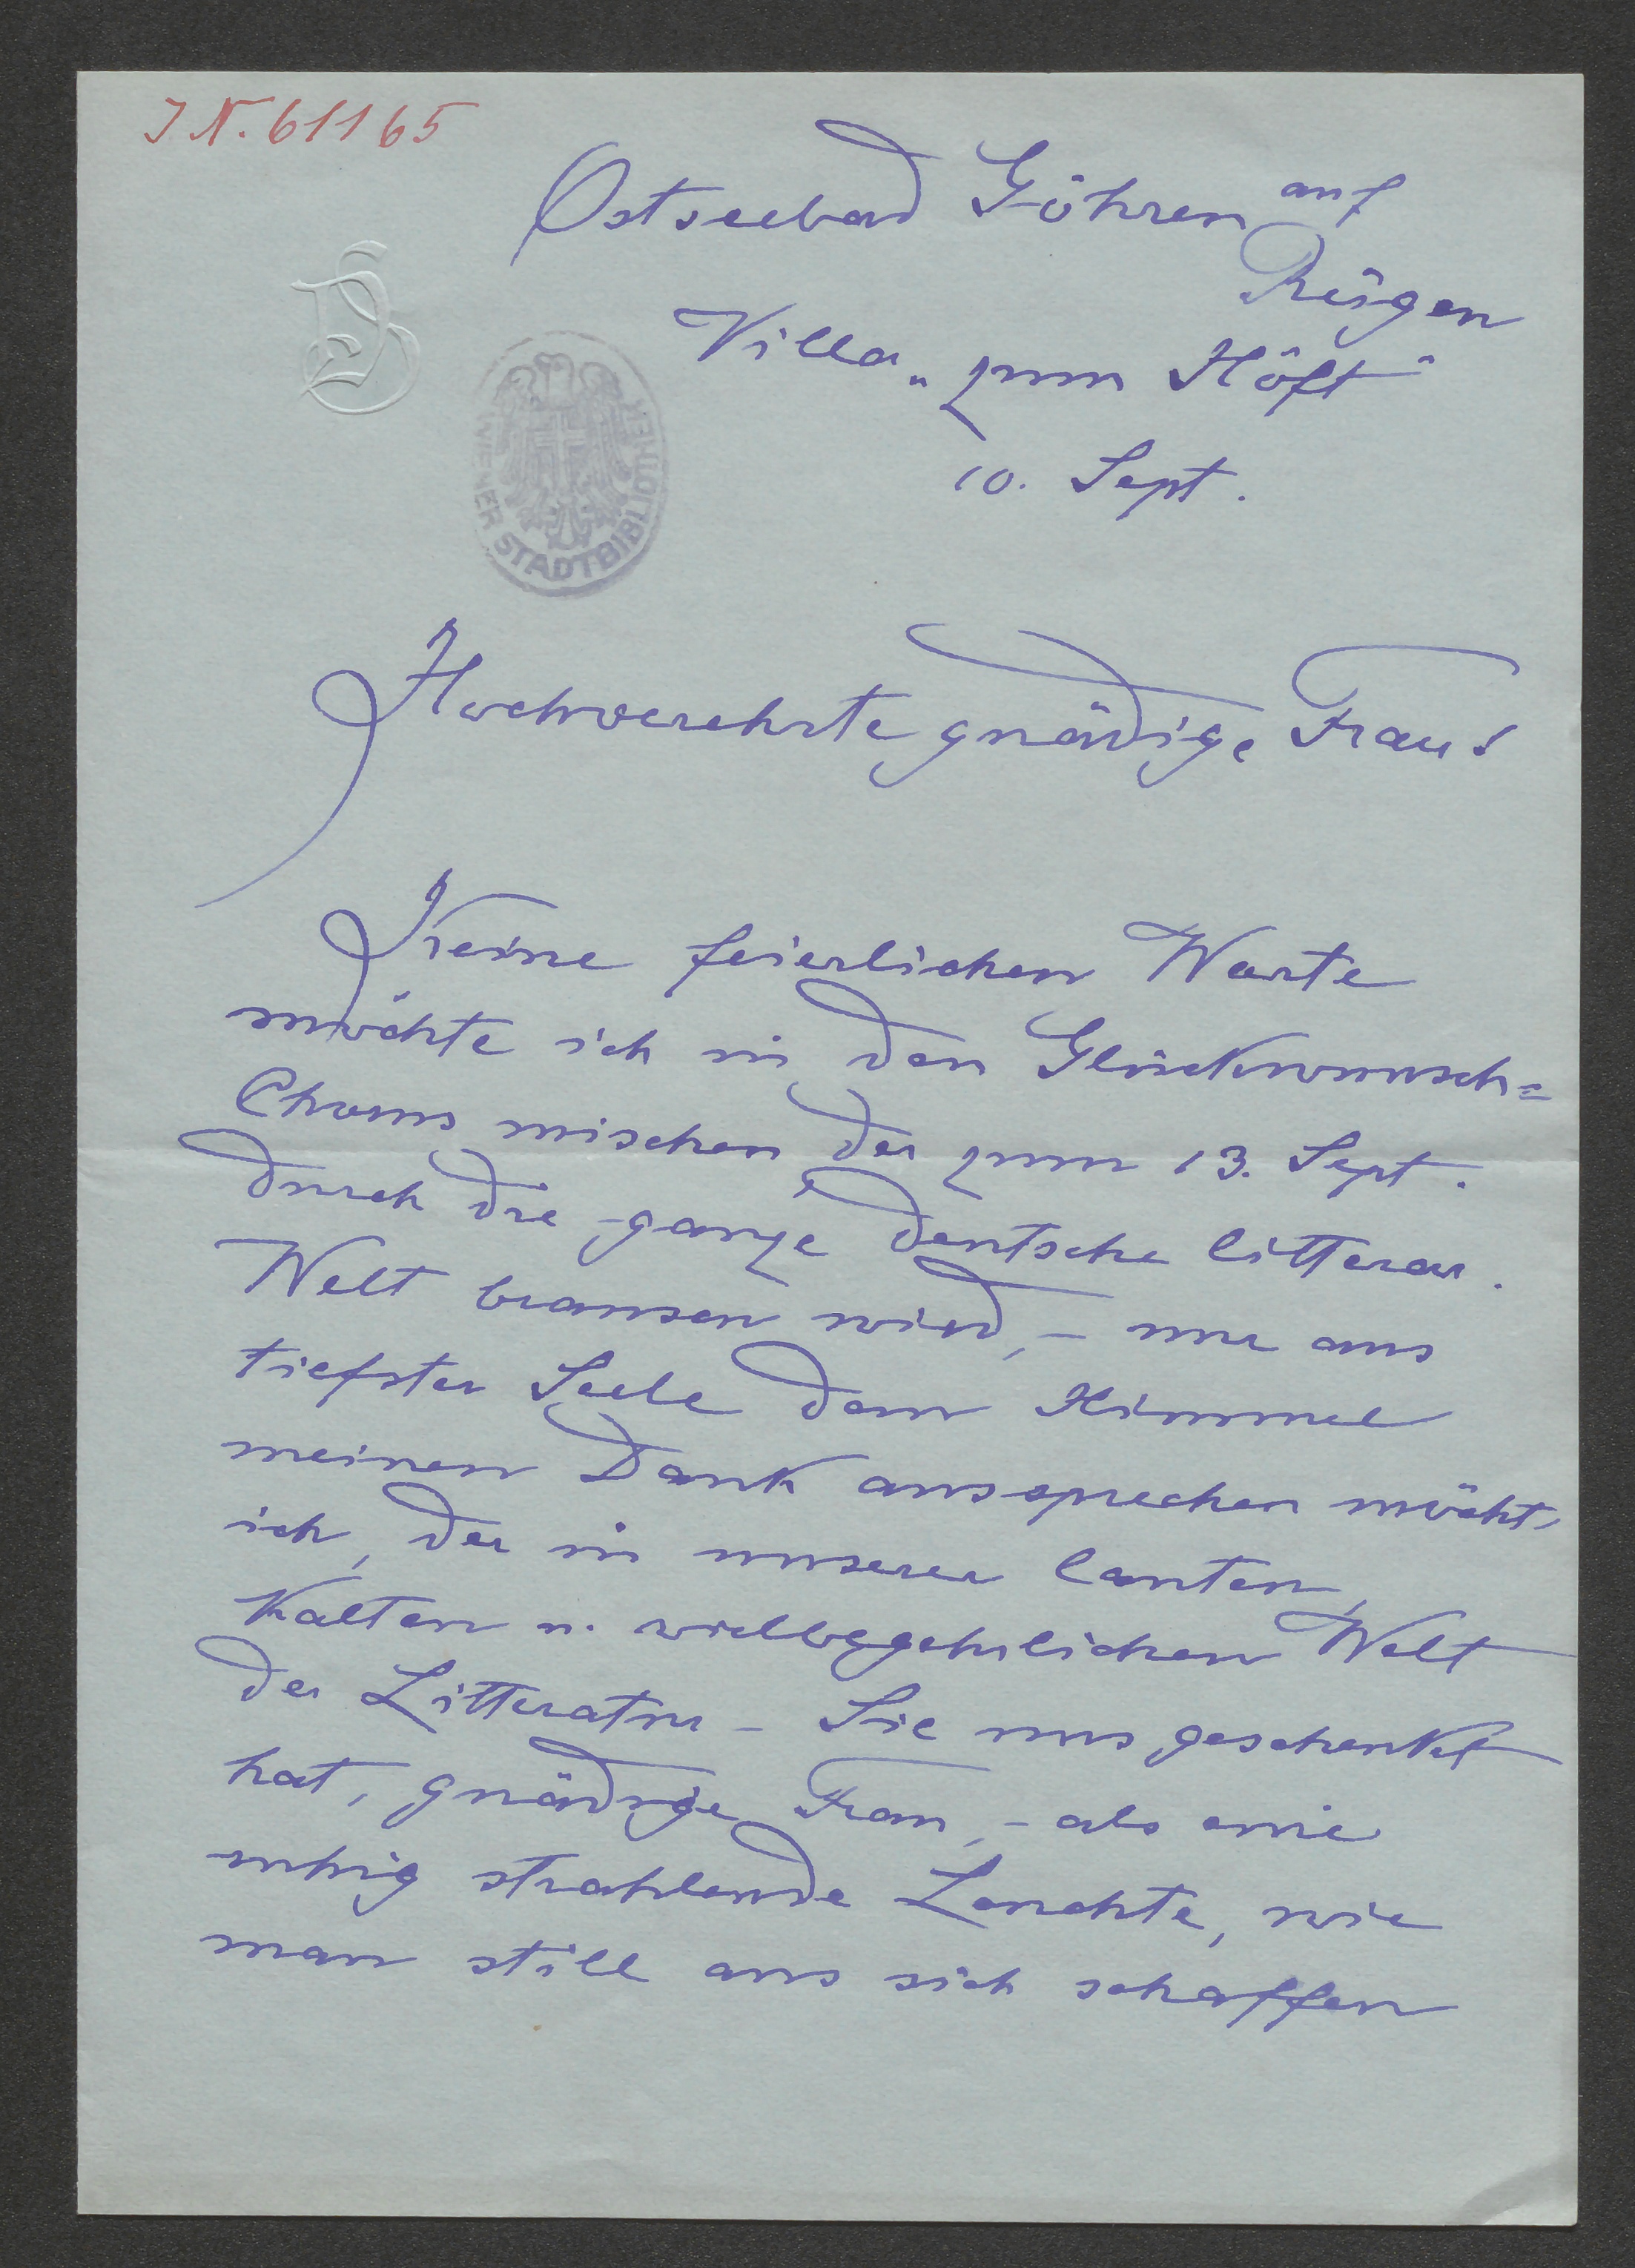 J.N. 61165
Ostseebad Göhren auf
Rügen
Villa „zum Höft"
10. Sept.
WIENER STADTBIBLIOTHEK
Hochverehrte gnädige Frau!
Keine feierlichen Worte
möchte ich in den Glückwunsch=
Chorus mischen der zum 13. Sept.
durch die ganze deutsche litterar.
Welt brausen wird, – nur aus
tiefster Seele dem Himmel
meinen Dank aussprechen möcht'
ich, der in unserer lauten,
kalten u. vielbegehrlichen Welt
der Litteratur – Sie uns geschenkt
hat, gnädige Frau, – als eine
ruhig strahlende Leuchte, wie
man still aus sich schaffen